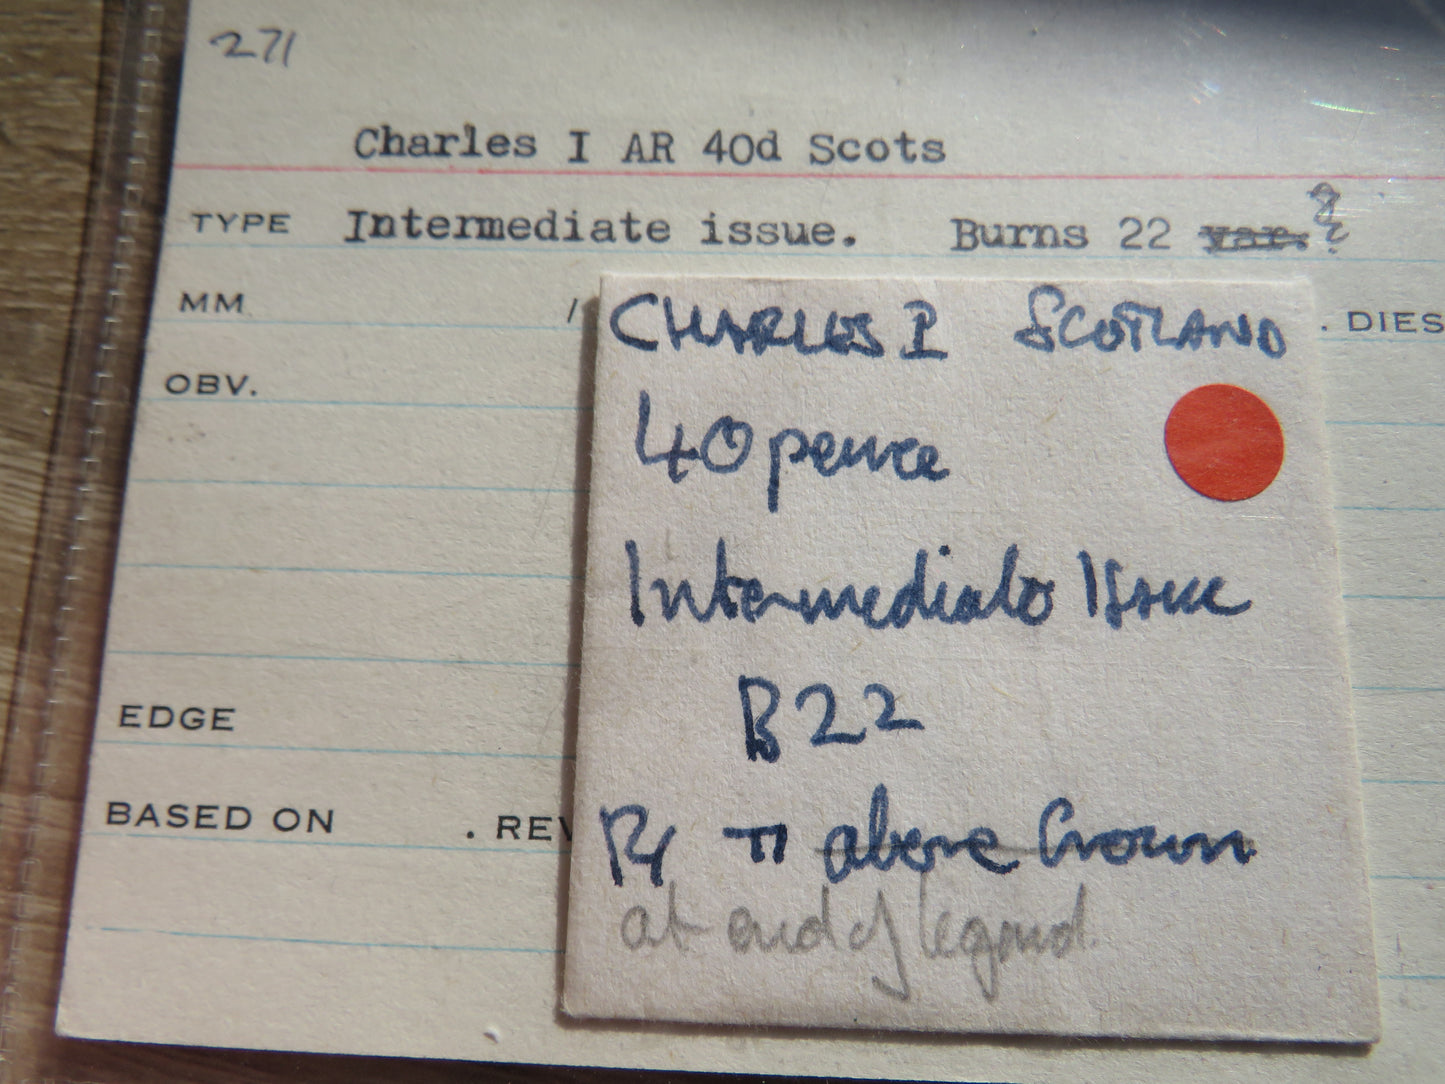 271
Charles I AR 40d Scots
TYPE Intermediate issue. Burns 22 var. ?
MM / . DIES
OBV.
EDGE
BASED ON . REV
CHARLES I SCOTLAND
40 pence
Intermediate Issue
B22
R π above Crown
at end of legend.